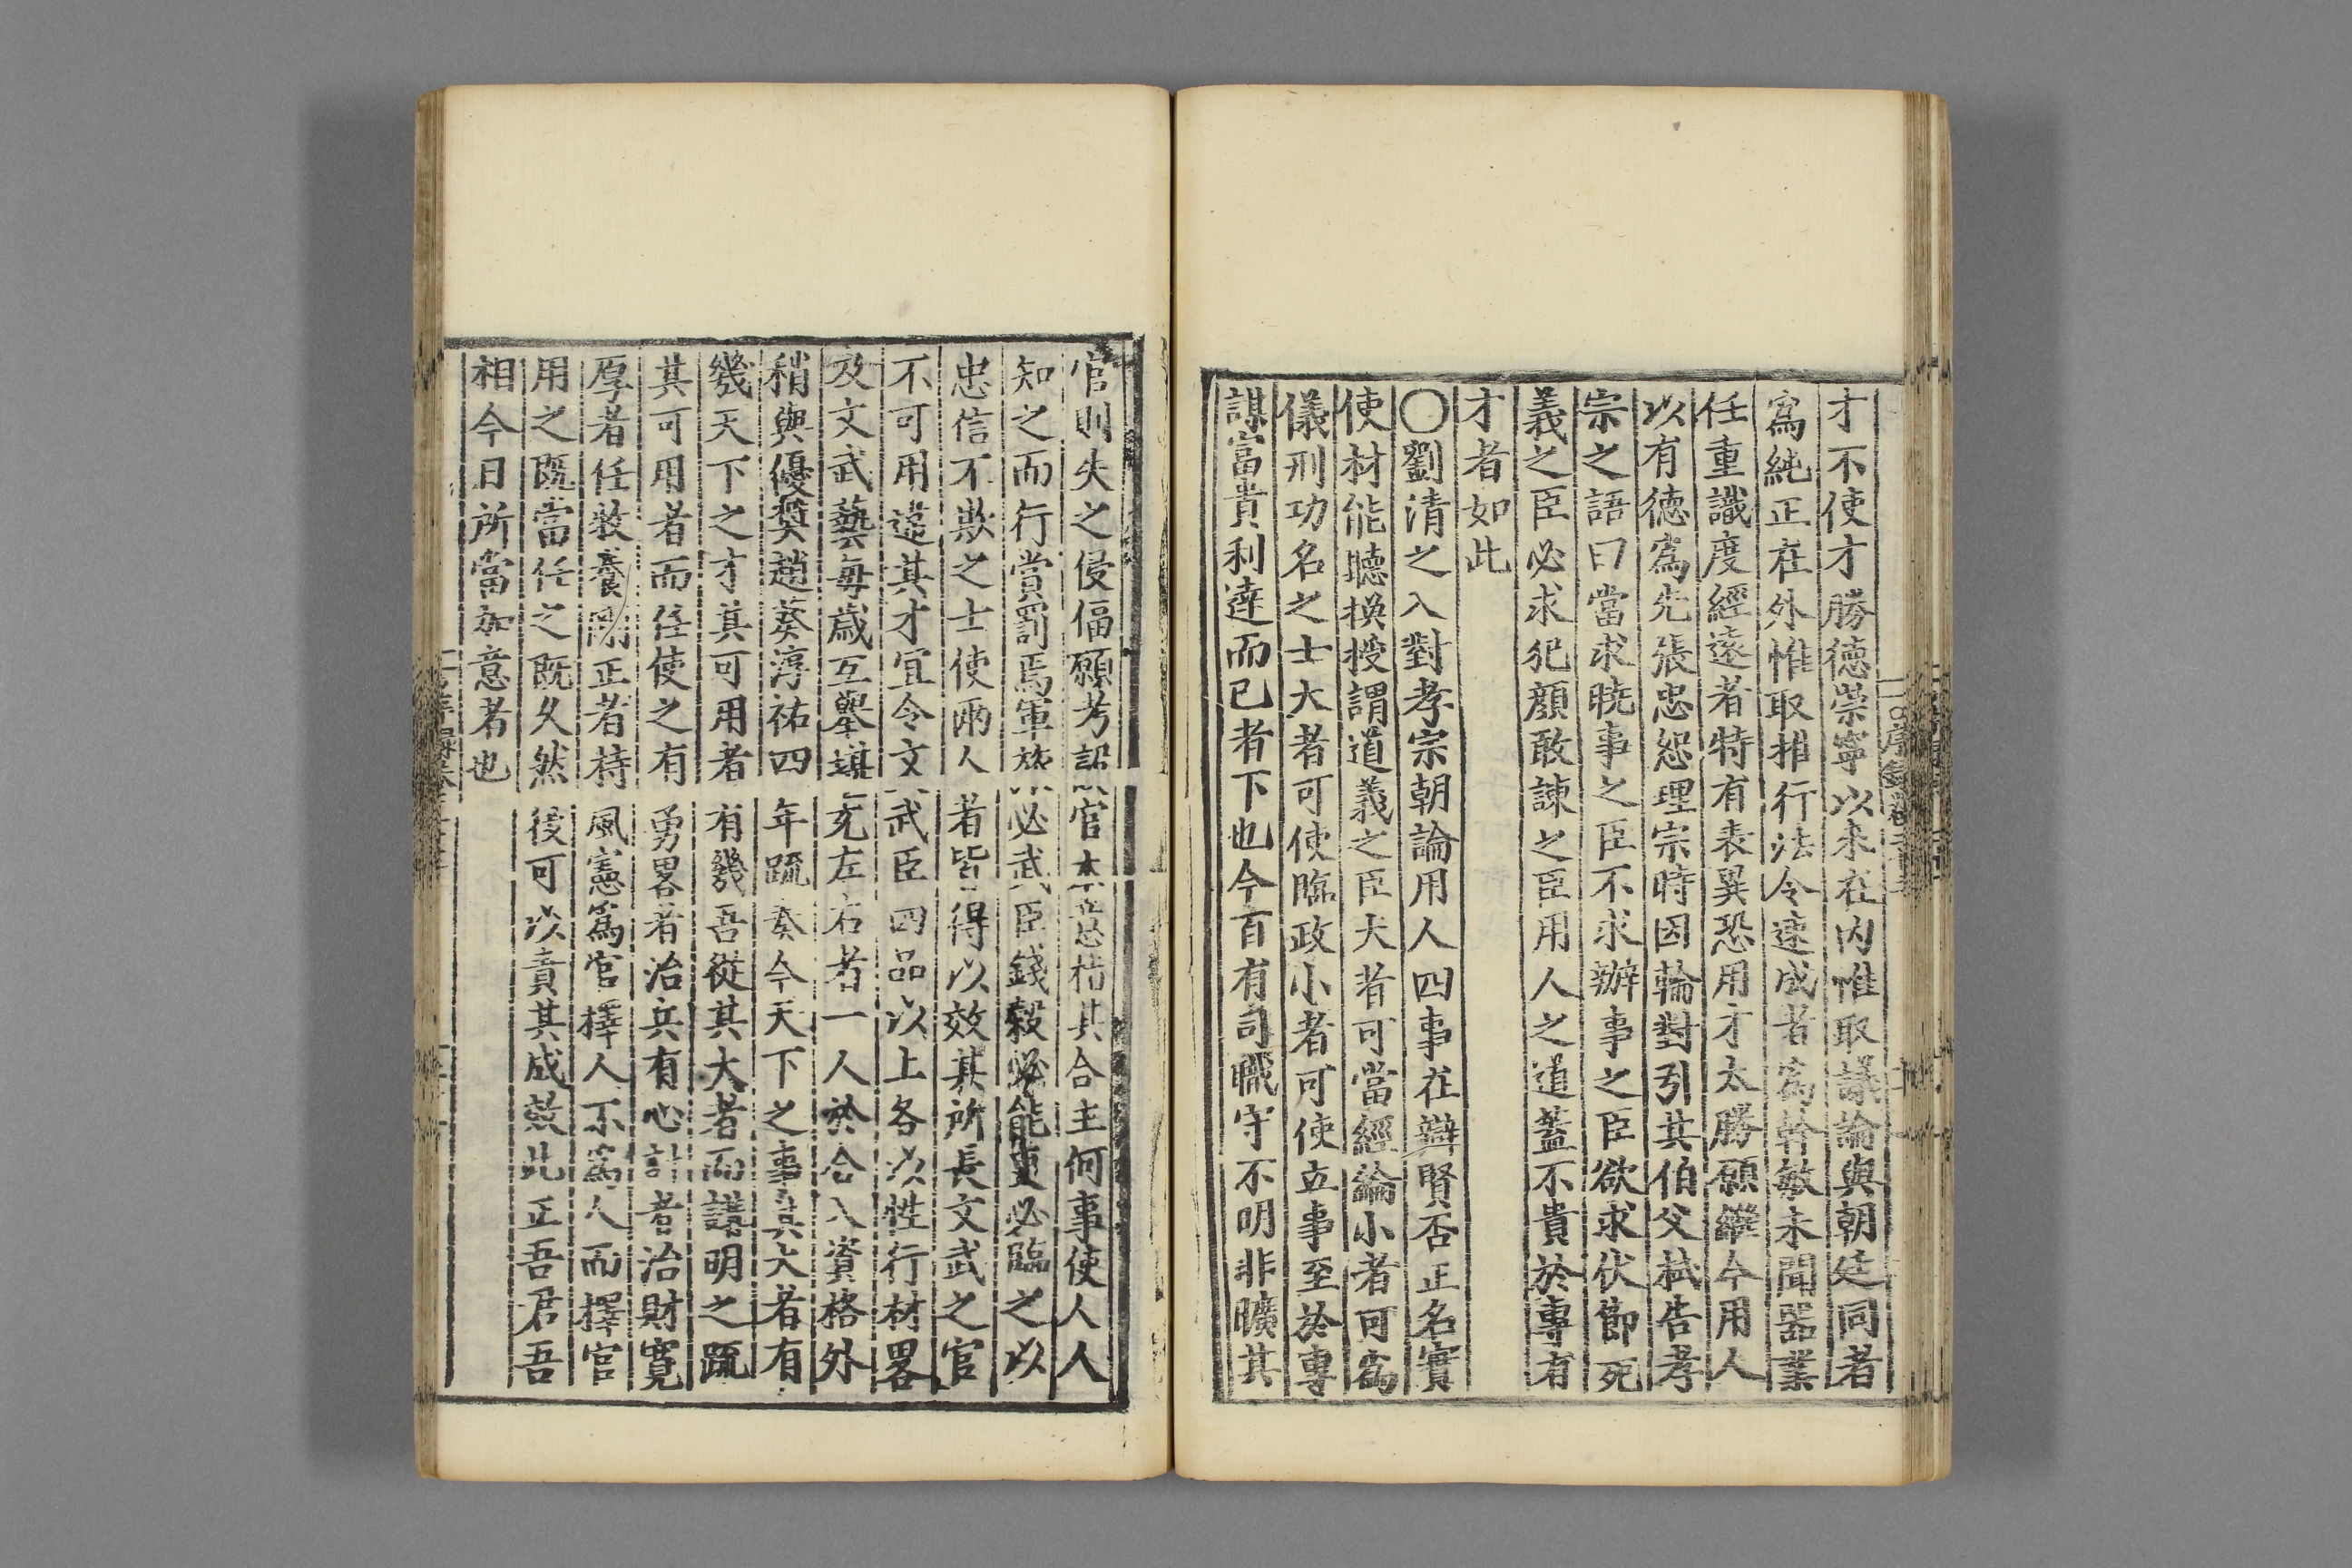 才不使才勝德崇寧以來在內惟取議論與朝廷同者
爲純正在外惟取推行法令速成者爲幹敏未聞器業
任重識度經遠者特有表異恐用才太勝願繼今用人
以有德爲先張忠恕理宗時因輪對引其伯父栻告孝
宗之語曰當求曉事之臣不求辦事之臣欲求伏節死
義之臣必求犯顏敢諫之臣用人之道蓋不貴於專有
才者如此
〇劉清之入對孝宗朝論用人四事在辯賢否正名實
使材能聽換授謂道義之臣大者可當經綸小者可爲
儀刑功名之士大者可使臨政小者可使立事至於專
謀富貴利達而已者下也今百有司職守不明非曠其
官則失之侵偪願考詔官本意指其合主何事使人人
知之而行賞罰焉軍旅必武臣錢穀必能吏必臨之以
忠信不欺之士使兩人者皆得以效其所長文武之官
不可用違其才宜令文武臣四品以上各以性行材畧
及文武藝每歲互舉堪充左右者一人於合入資格外
稍與優奬趙葵淳祐四年疏奏今天下之事其大者有
幾天下之才其可用者有幾吾從其大者而講明之疏
其可用者而任使之有勇畧者治兵有心計者治財寬
厚者任牧養剛正者持風憲爲官擇人不爲人而擇官
用之旣當任之旣久然後可以責其成效此正吾君吾
相今日所當加意者也